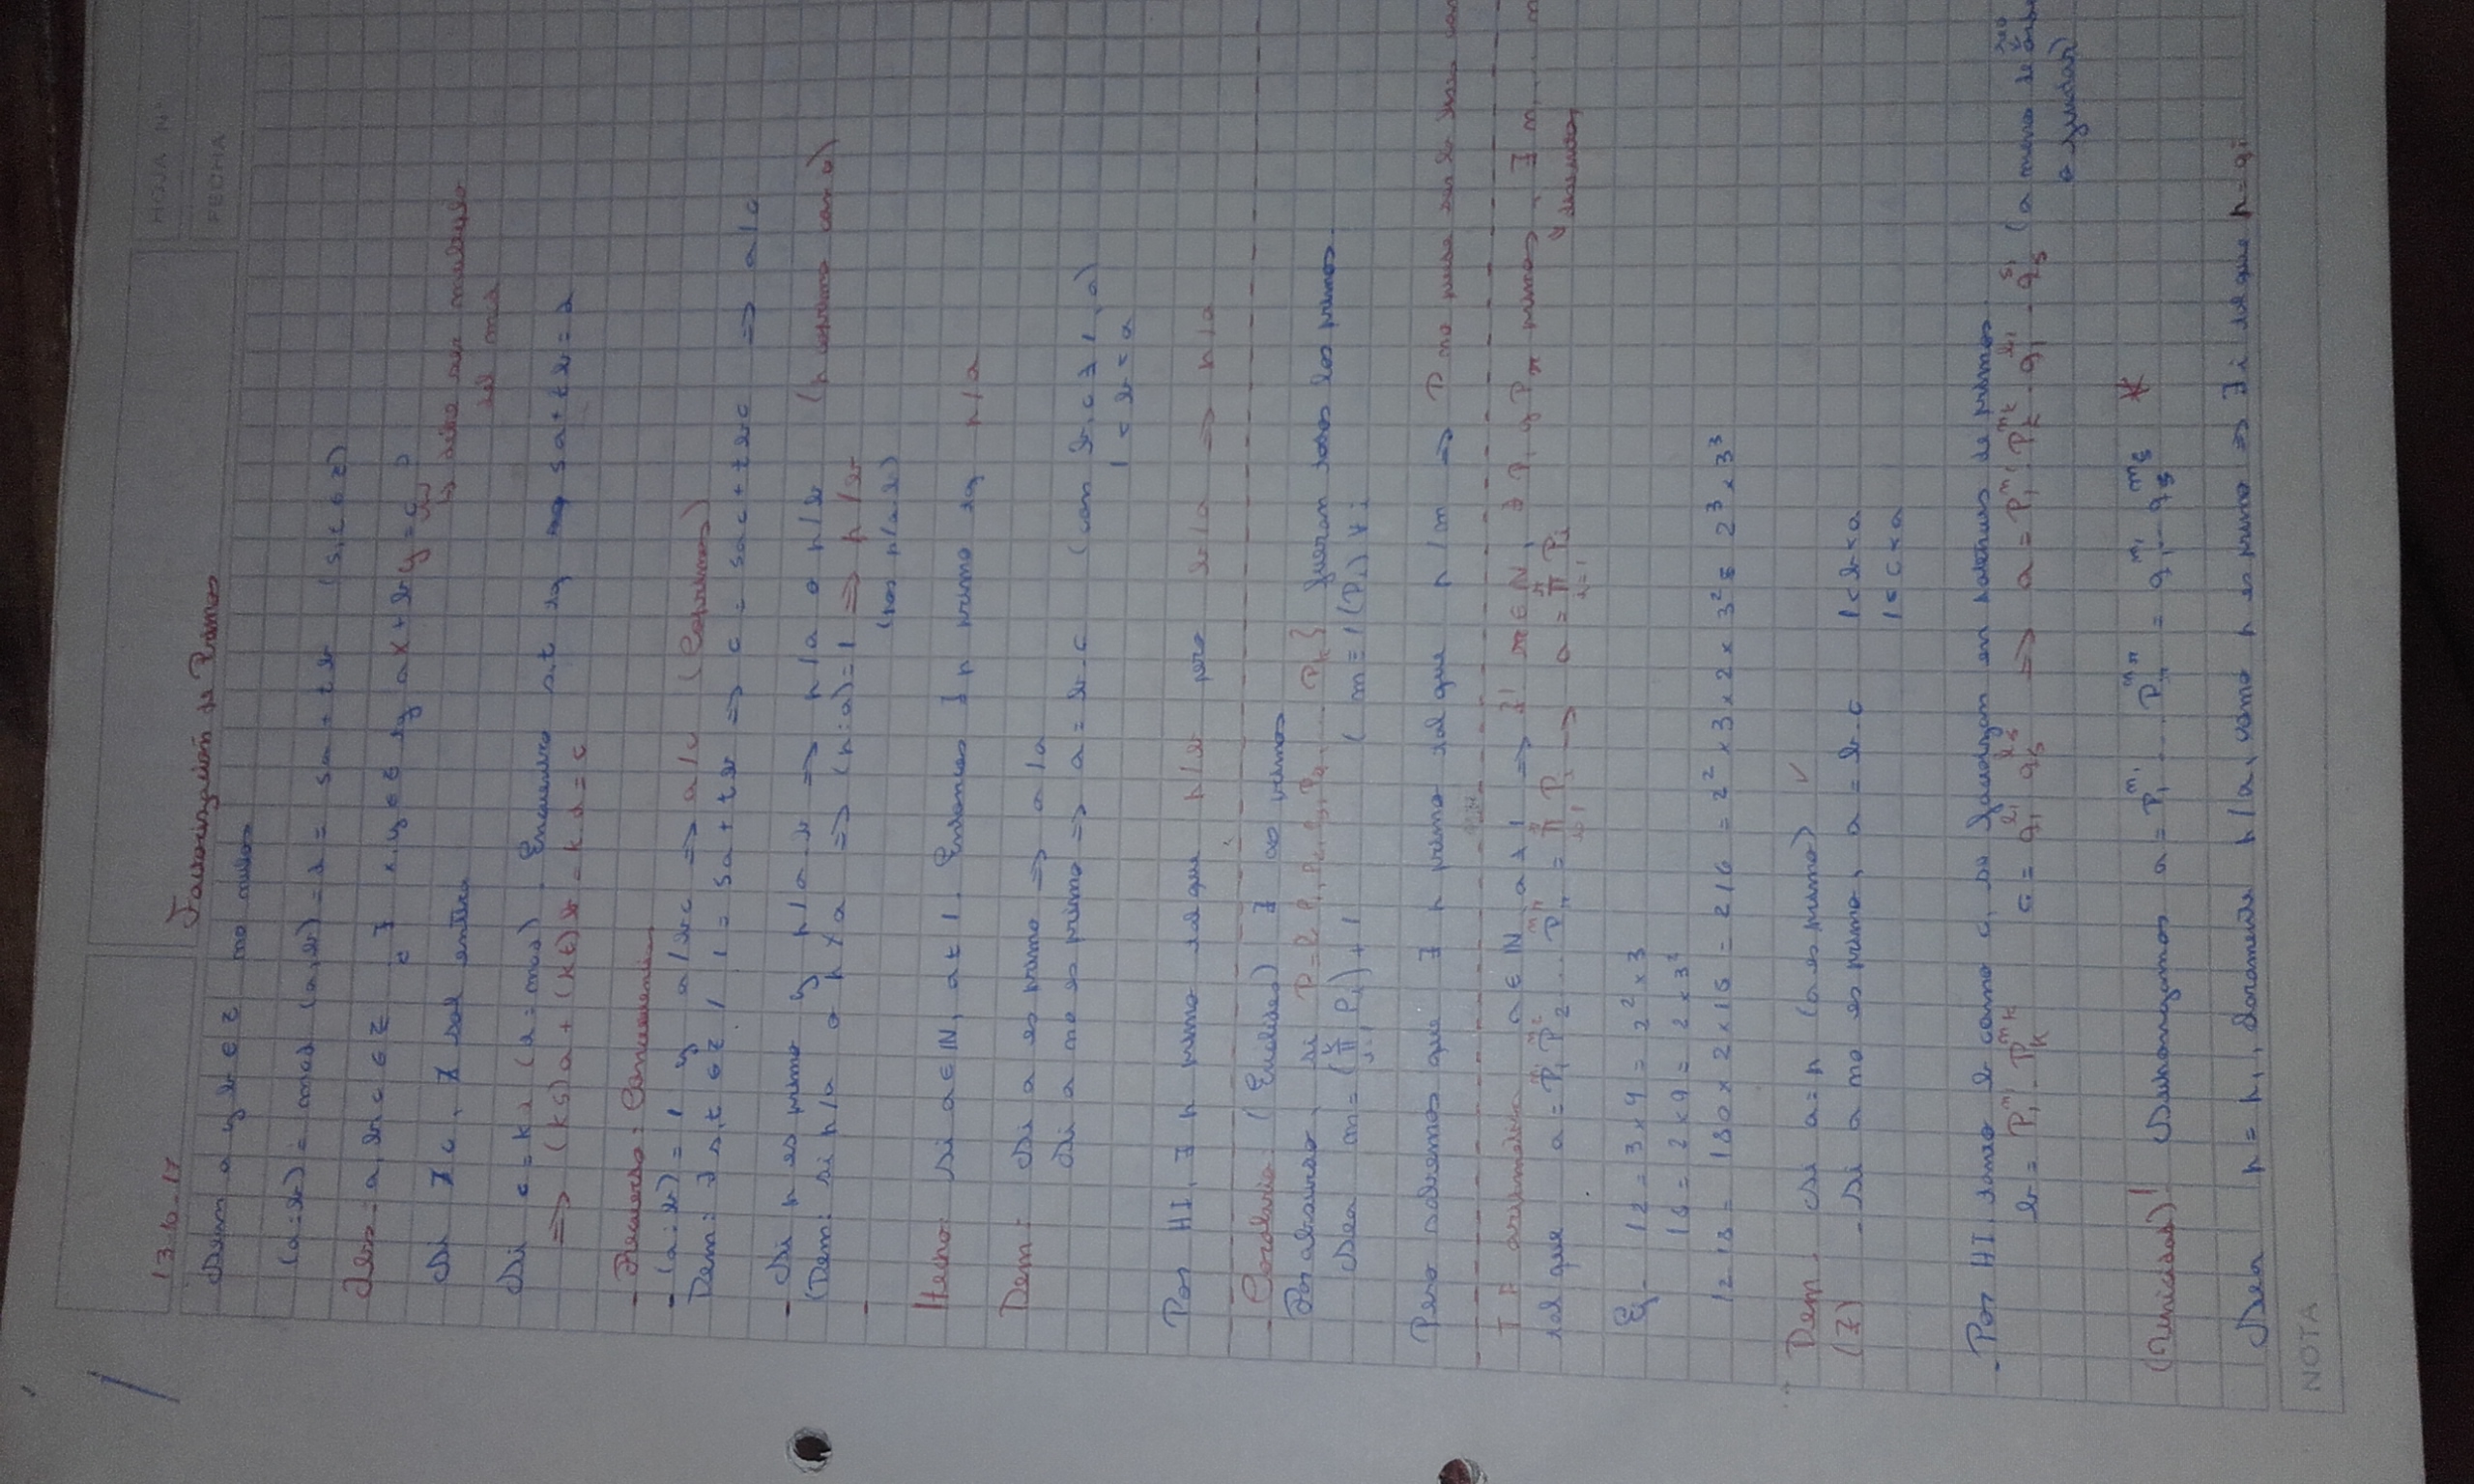 HOJA Nº
FECHA
13-10-17
Factorización de Primos
Sean a y b ∈ Z no nulos
(a:b) = mcd (a,b) = d = sa + tb (s,t ∈ Z)
a, b, c ∈ Z ¿∃ x,y ∈ Z tq ax + by = c?
↳ debe ser multiplo
del mcd
Si ∤ c, ∄ sol entera
Si c = k d (d = mcd). Encuentro s,t tq sa + tb = d
⇒ (ks)a + (kt)b = k.d = c
- Recuerdo: Consecuencia
- (a:b) = 1 y a/bc ⇒ a/c (Coprimos)
Dem: ∃ s,t ∈ Z / 1 = sa + tb ⇒ c = sac + tbc ⇒ a/c
- Si p es primo y p/a.b ⇒ p/a o p/b (p coprimo con a)
(Dem: si p/a o p∤a ⇒ (p:a)=1 ⇒ p/b
(pos p/a.b)
Hecho: Si a ∈ IN, a ≠ 1. Entonces ∃ p primo tq p/a
Dem: Si a es primo ⇒ a/a
Si a no es primo ⇒ a = b.c (con b,c ≠ 1, a)
1 < b < a
Por HI, ∃ p primo tal que p/b pero b/a ⇒ p/a
- Corolario (Euclides) ∃ ∞ primos
Por absurdo, si P = { P1, P2, P3, P4, ... Pk} fueran todos los primos.
Sea m = (∏ Pi) + 1 ( m ≡ 1 (Pi) ∀ i
Pero sabemos que ∃ p primo tal que p/m ⇒ P no puede ser
T F aritmética a ∈ IN, a ≠ 1 ⇒ ∃! r ∈ N, ∃ P1 y Pr primos, ∃ n1 ...
distintos
tal que a = P1^n1 P2^n2 ... Pr^nr = ∏ Pi → a = ∏ Pi
Ej- 12 = 3 x 4 = 2² x 3
18 = 2 x 9 = 2 x 3²
12.18 = 180 x 2 x 18 = 216 = 2² x 3 x 2 x 3² = 2³ x 3³
Dem: Si a = p (a es primo) ✓
(∃) - Si a no es primo, a = b.c 1 < b < a
1 < c < a
- Por HI, tanto b como c, se factorizan en potencias de primos
b = P1^n1 . Pk^nk c = q1^l1 qs^ls ⇒ a = P1^n1 . Pk^nk . q1^l1 . qs^s1 (a menos de
o juntar)
(Unicidad)! Supongamos a = P1^n1 ... Pr^nr = q1^m1 .. qs^ms *
Sea p = p1, claramente p/a, como p es primo ⇒ ∃ i tal que p = qi
NOTA